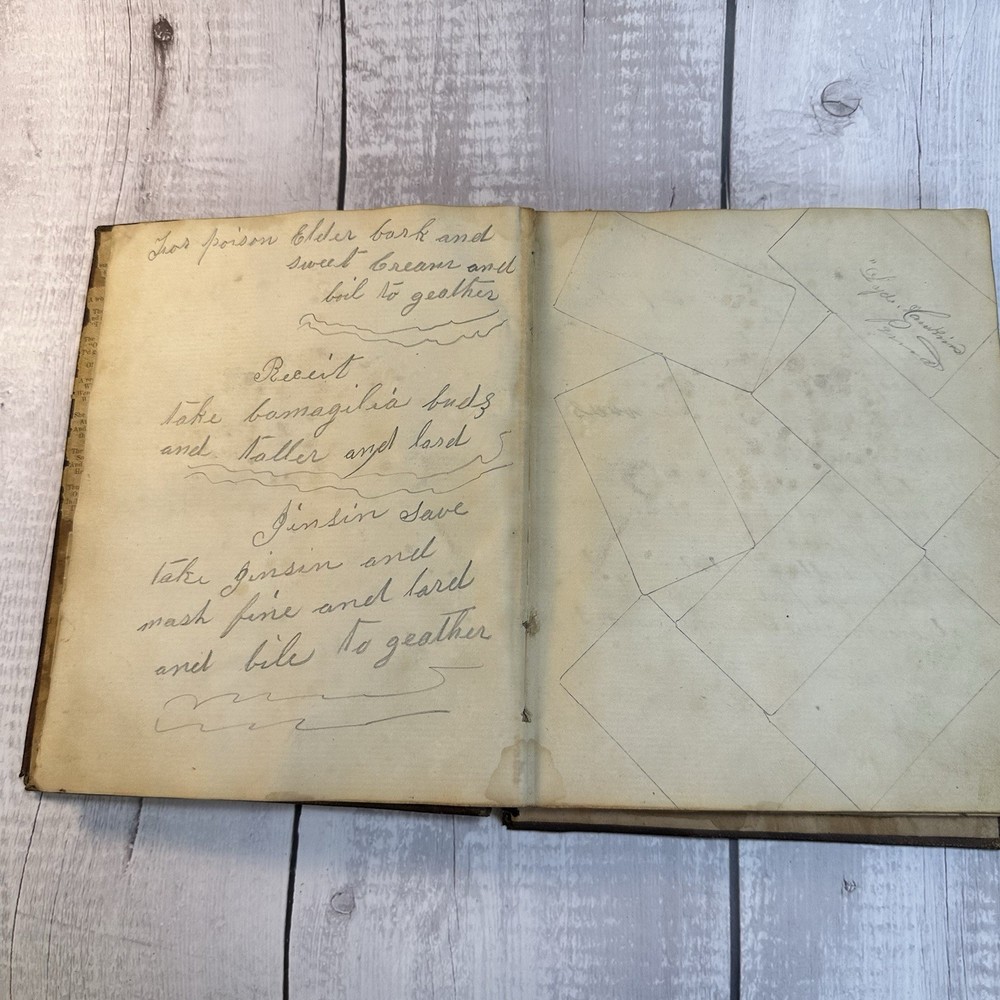 For poison Elder bark and
sweet Cream and
boil to geather
Receit
take bamagilia buds
and taller and lard
Jinsin Save
take jinsin and
mash fine and lard
and bile to geather